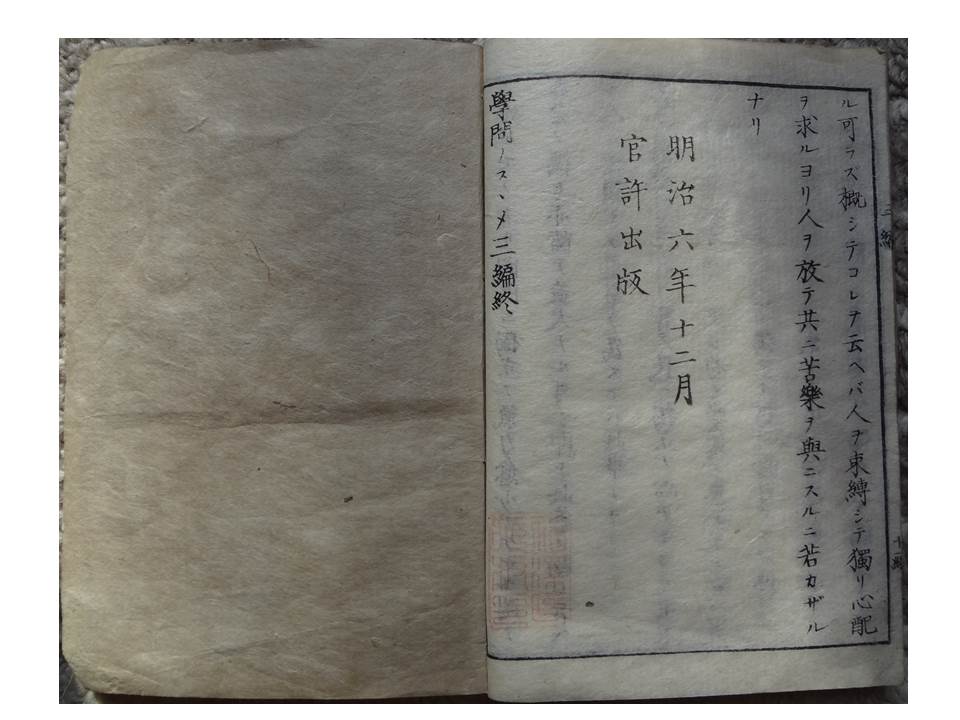 ル可ラズ概シテコレヲ云ヘバ人ヲ束縛シテ獨リ心配
ヲ求ルヨリ人ヲ放テ共ニ苦樂ヲ與ニスルニ若カザル
ナリ
明治六年十二月
官許出版
學問ノスヽメ三編終